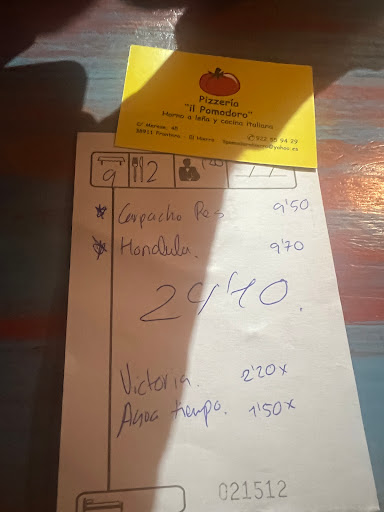 Pizzería
"il Pomodoro"
Horno a leña y cocina italiana
38911 Frontera - El Hierro 922 55 94 29
9 2
Carpacho Pes 9'50
9'70
24'10.
Victoria. 2'20x
Agua tiempo. 1'50x
021512